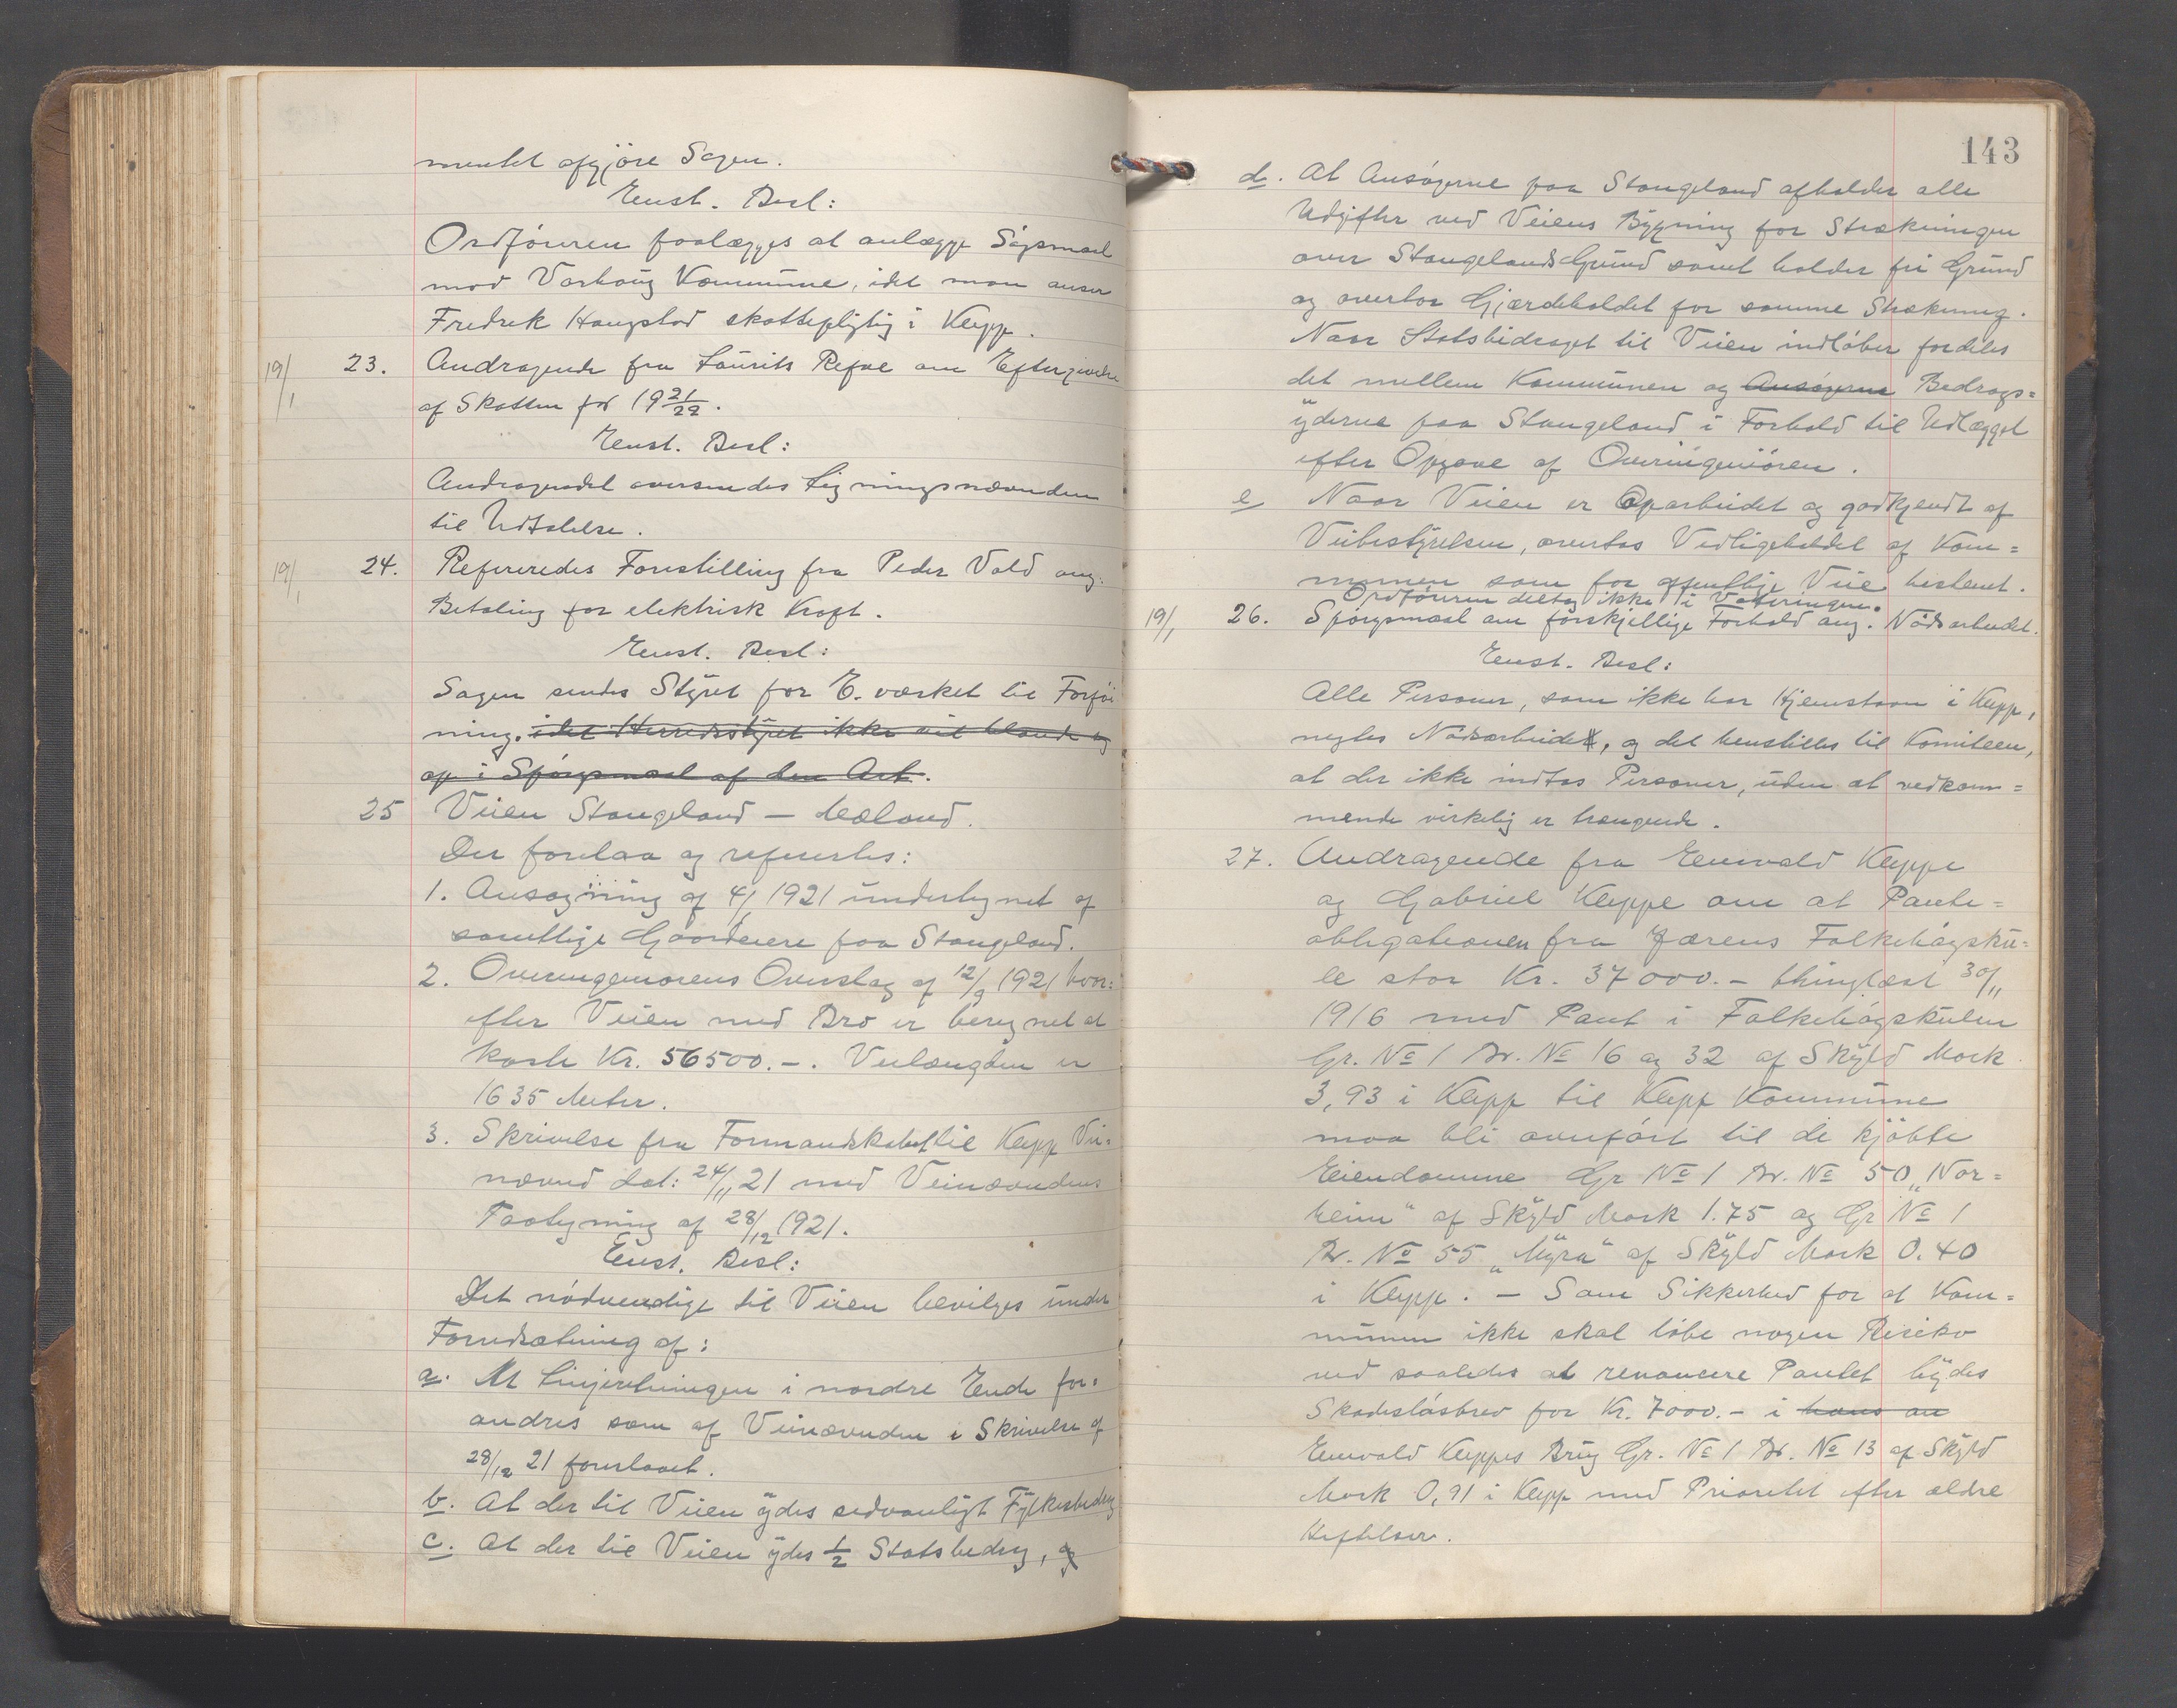 mentet afgjöre Sagen.
Enst. Besl:
Ordföreren paalægges at anlægge Sögsmaal
mod Varhaug Kommune, idet man anser
Fredrek Haugstad skattepligtig i Klepp.
19/1 23. Andragende fra Laurits Refve om Eftergivelse
af Skatten for 1921/22.
Enst. Besl:
Andragendet oversendes Ligningsnævnden
til Udtalelse.
19/1 24. Refereredes Forestilling fra Peder Vold ang.
Betaling for elektrisk Kraft.
Enst. Besl:
Sagen sendes Styret for E.værket til Forföi
ning. idet Herredsstyret ikke vil blande sig
op i Spörgsmaal af den Art.
25 Veien Stangeland – Mæland.
Der forelaa og refereertes:
1. Ansögning af 4/1 1921 undertegnet af
samtlige Gaardeiere paa Stangeland.
2. Overingeniörens Overslag af 12/9 1921 hvor=
efter Veien med Bro er beregnet at
koste Kr. 56500.–. Veilængden er
1635 Meter.
3. Skrivelse fra Formandskabet til Klepp Vei=
nævnd dat: 24/11 21 med Veinævndens
Paategning af 28/12 1921.
Enst. Besl:
Det nödvendige til Veien bevilges under
Forudsætning af:
a. At Linjeretningen i nordre Ende for=
andres som af Veinævnden i Skrivelse af
28/12 21 foreslaaet.
b. At der til Veien ydes sedvanligt Fylkesbidrag
c. At der til Veien ydes 1/2 Statsbidrag, og
143
d. At Ansögerne paa Stangeland afholder alle
Udgifter ved Veiens Bygning for Strækningen
over Stangelands Grund samt holder fri Grund
og overtar Gjærdeholdet for samme Strækning.
Naar Statsbidraget til Veien indlöber fordeles
det mellem Kommunen og Ansögerne Bedrags=
yderne paa Stangeland i Forhold til Udlægget
efter Opgave af Overingeniören.
e Naar Veien er Oparbeidet og godkjendt af
Veibestyrelsen, overtas Vedligeholdet af Kom=
munen som for offentlige Veie bestemt.
Ordföreren deltog ikke i Voteringen.
19/1 26. Spörgsmaal om forskjellige Forhold ang. Nödsarbeidet.
Enst. Besl:
Alle Personer, som ikke har Hjemstavn i Klepp,
negtes Nödsarbeide, og det henstilles til Komiteen,
at der ikke indtas Personer, uden at vedkom=
mende virkelig er trængende.
27. Andragende fra Enevald Kleppe
og Gabriel Kleppe om at Pante=
obligationen fra Jærens Folkehögsku=
le stor Kr. 37000.– thinglæst 30/11
1916 med Pant i Folkehögskulen
Gr. No 1 Br. No 16 og 32 af Skyld Mark
3,93 i Klepp til Klepp Kommune
maa bli overfört til de kjöbte
Eiendomme Gr No 1 Br. No 50 „Nor=
heim" af Skyld Mark 1.75 og Gr No 1
Br. No 55 „Myra" af Skyld Mark 0.40
i Klepp. – Som Sikkerhed for at Kom=
munen ikke skal löbe nogen Risiko
ved saaledes at renoncere Pantet bydes
Skadeslösbrev for Kr. 7000.– i hans an
Enevald Kleppes Brug Gr. No 1 Br. No 13 af Skyld
Mark 0,91 i Klepp med Prioritet efter ældre
Heftelser.